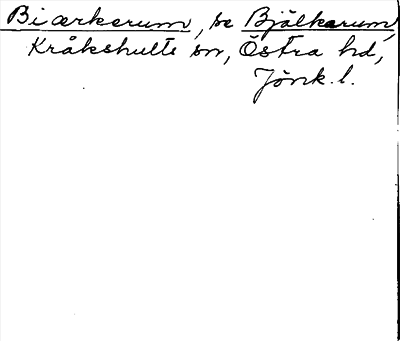 Biærkerum, se Bjälkarum,
Kråkshults sn, Östra hd,
Jönk. l.